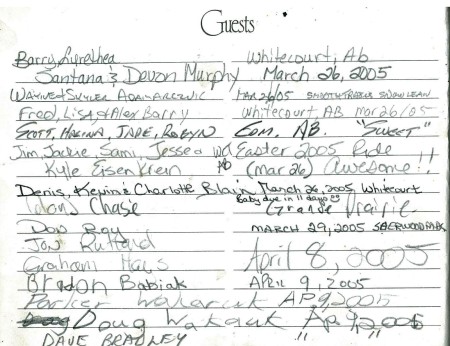 Guests
Barry, Lyrethea Whitecourt, Ab
Santana & Devon Murphy March 26, 2005
Wayne & Skyler Mar 26/05
Fred, Lisa & Alex Barry Whitecourt AB mar 26/05
Scott, Marina, Jade, Robyn Edm. AB. "Sweet"
Jim, Jackie, Sami, Jessea Easter 2005 Ride
Kyle Eisenkrein (mar 26) Awesome!!
Denis, Kevin & Charlotte Blain March 26, 2005 Whitecourt
Baby due in 11 days
Chase Grande Prairie
Don Roy March 29, 2005 Sherwood Park
Jon
Graham Hays April 8, 2005
Braton Babiak April 9, 2005
Parker Wakaruk AP 9 2005
Doug Wakaruk Ap 9, 2005
Dave Bradley " "